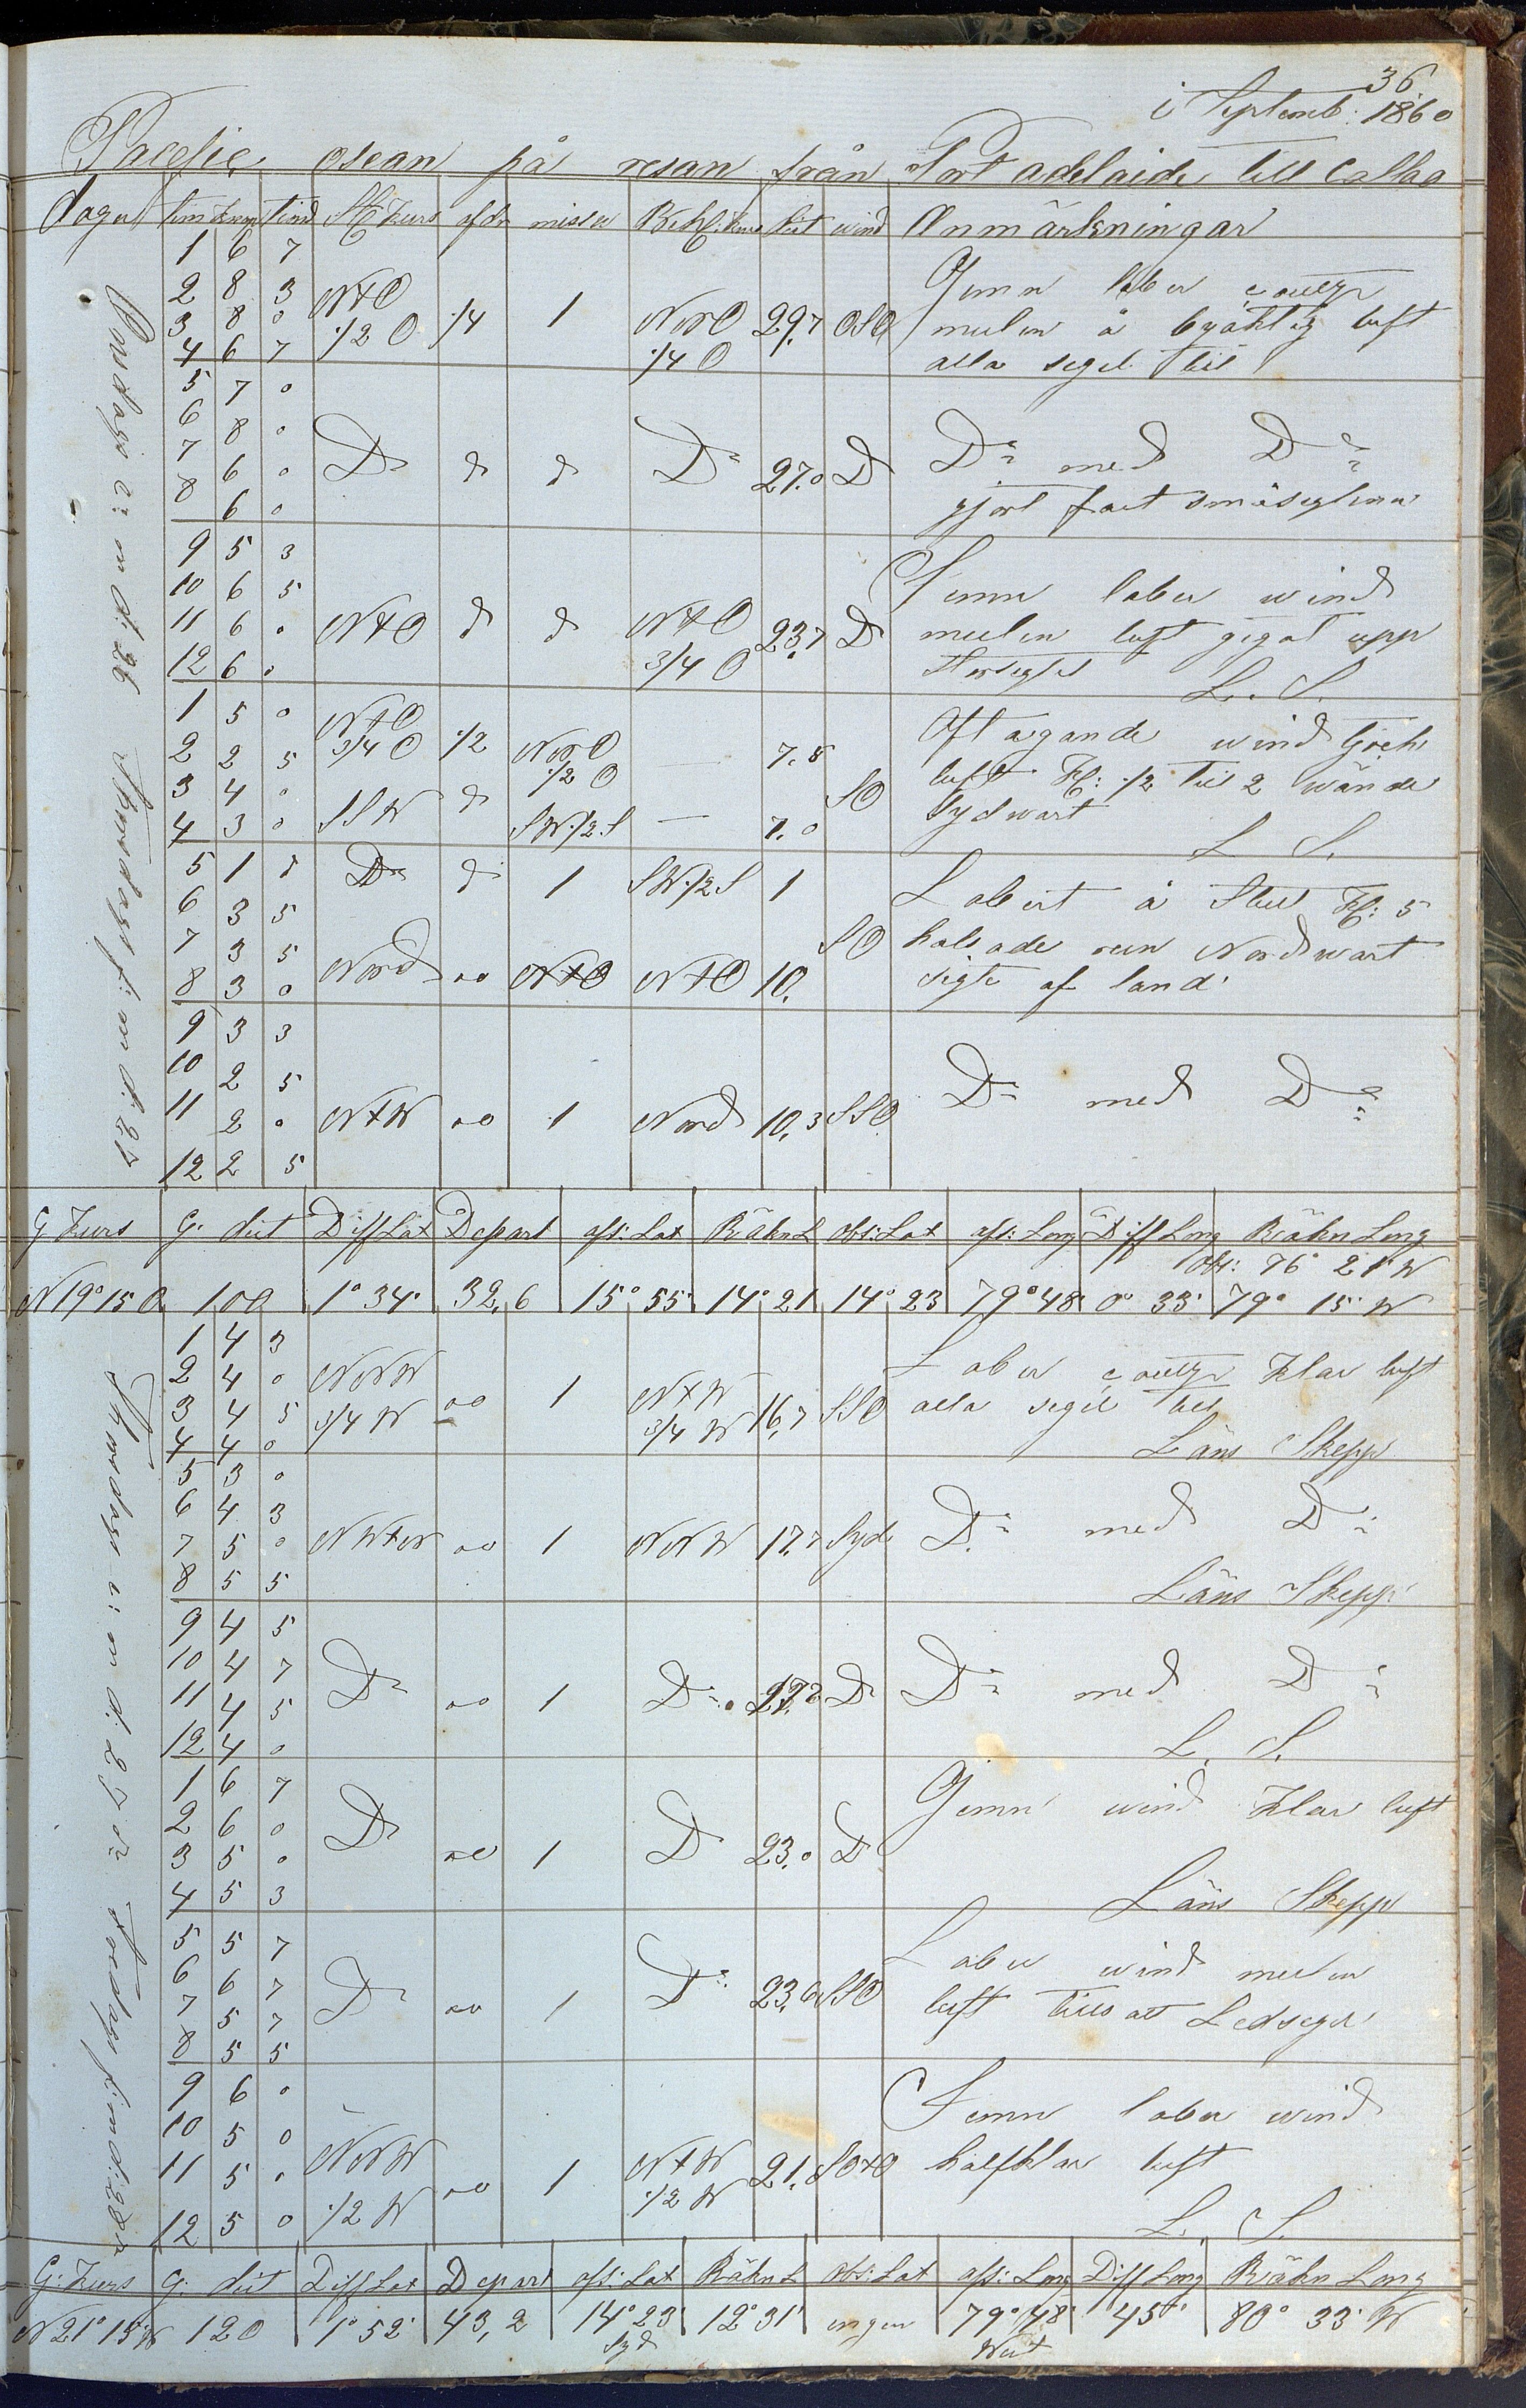 36
i Septemb: 1860
Pacefic osean på resan från Port adelaide till Callao
dagar tim knop tind St Kurs afdr missv Beh: kurs dist wind Anmärkningar
Onsdagen e: m d: 26 Thorsdagen f: m d: 27
1 6 7
2 8 3 N+O Jemn laber
3 8 0 1/2 O 1/4 1 NNO 29,7 OSO mulen å byaktig luft
4 6 7 1/4 O alla segel till
5 7 0
6 8 0
7 6 0 Do d d Do 27.0 D Do med Do
8 6 0 gjort fast småseglena
9 5 3
10 6 5 Jemn laber wind
11 6 0 N+O d d N+O 23,7 D mulen luft gigat upp
12 6 0 3/4 O Storseglet L. S.
1 5 0 N+O
2 2 5 3/4 O 1/2 NNO 1/2 O — 7.5 Aftagande wind
3 4 0 SO luft Kl: 1/2 till 2 wände
4 3 0 SSW d SW 1/2 S — 7.0 Sydwart L S.
5 1 d Do d 1 SW 1/2 S 1 Labert å Stilt Kl: 5
6 3 5
7 3 5 SO halsade run Nordwart
8 3 0 Nord oo N+O N+O 10. sigte af land
9 3 3
10 2 5
11 2 0 N+W oo 1 Nord 10,3 SSO Do med Do
12 2 5
G Kurs G. dist Diff Lat Depart afs: Lat Räkn L obs: Lat afs: Long Diff Long Räkn Long
Obs: 76° 21' W
N 19° 15 O 100 1° 34' 32,6 15° 55' 14° 21 14° 23 79° 48' 0° 33' 79° 15' W
Thorsdagen e: m d: 27 Fredagen f: m d: 28
1 4 3
2 4 0 NNW Laber Klar luft
3 4 5 3/4 W oo 1 N+W 3/4 W 16,7 SSO alla segel till
4 4 0 Läns Skepp
5 3 0
6 4 3
7 5 0 NW+N oo 1 NNW 17,7 Syd Do med Do
8 5 5 Läns Skepp
9 4 5
10 4 7
11 4 5 Do oo 1 Do D Do med Do
12 4 0 L. S.
1 6 7 Jemn wind Klar luft
2 6 0
3 5 0 Do oo 1 D 23,0 D
4 5 3 Läns Skepp
5 5 7
6 6 7 Laber wind mulen
7 5 7 Do oo 1 Do 23,6 SSO luft tillsatt Ledsegel
8 5 5
9 6 0
10 5 0 Jemn laber wind
11 5 0 NNW oo 1 N+W 21. SO+O halfklar luft
12 5 0 1/2 W 1/2 W L. S.
G: Kurs G. dist Diff Lat Depart afs: Lat Räkn L obs: Lat afs: Long Diff Long Räkn Long
N 21° 15' W 120 1° 52' 43,2 14° 23' 12° 31' ingen 79° 48' 45' 80° 33' W
Syd West